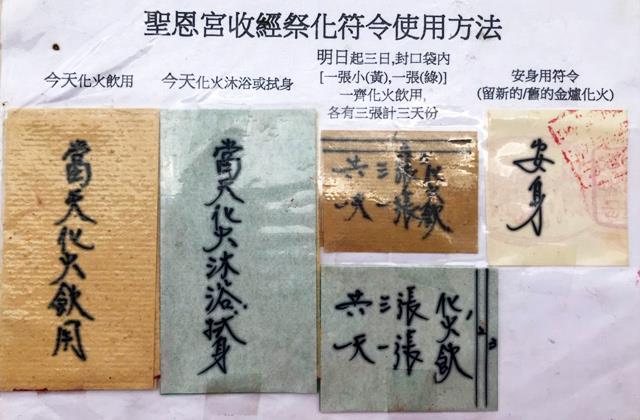 聖恩宮收經祭化符令使用方法
今天化火飲用
今天化火沐浴或拭身
明日起三日,封口袋內
[一張小(黃),一張(綠)]
一齊化火飲用,
各有三張計三天份
安身用符令
(留新的/舊的金爐化火)
當天化火飲用
當天化火沐浴拭身
化火飲
一張
三張
共一天
安身
化火飲
一張
三張
共一天